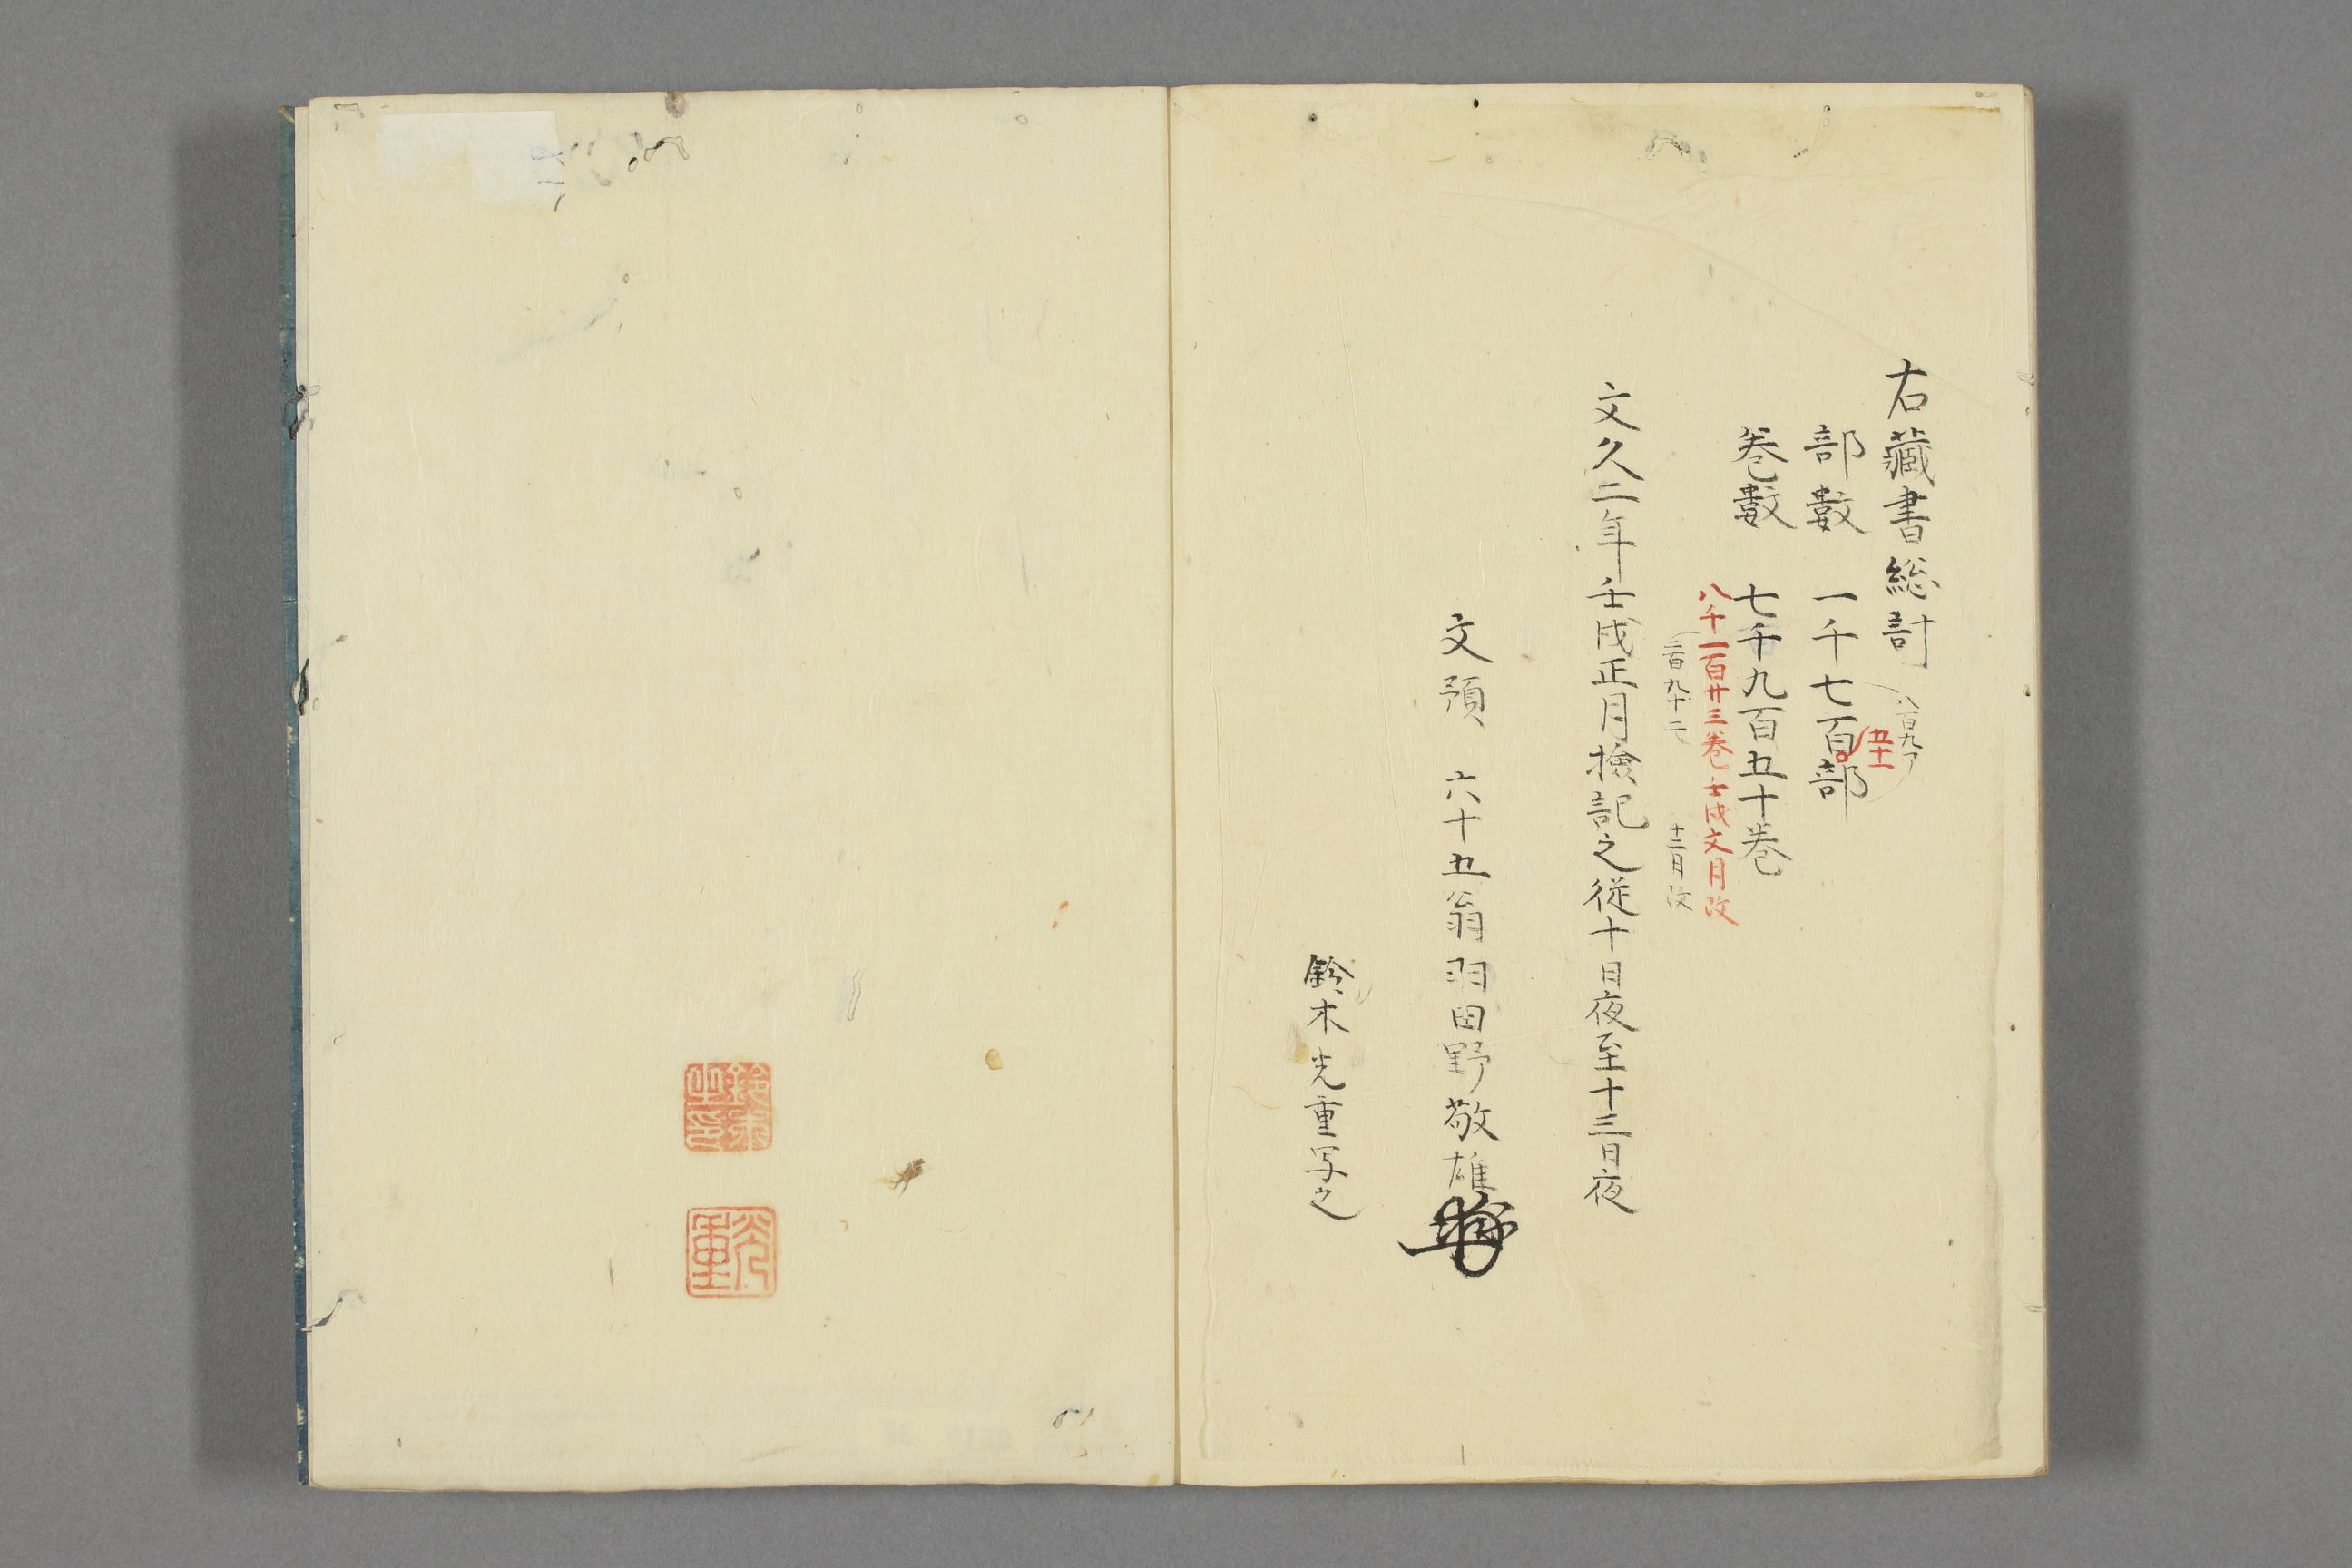 右藏書総計
八百九
部數　一千七百部
五十一
巻數　七千九百五十巻
八千一百廿三巻 壬戌文月改
三百九十二 十二月改
文久二年壬戌正月撿記之従十日夜至十三日夜
文預　六十五翁羽田野敬雄
鈴木光重写之
鈴木之印
光重